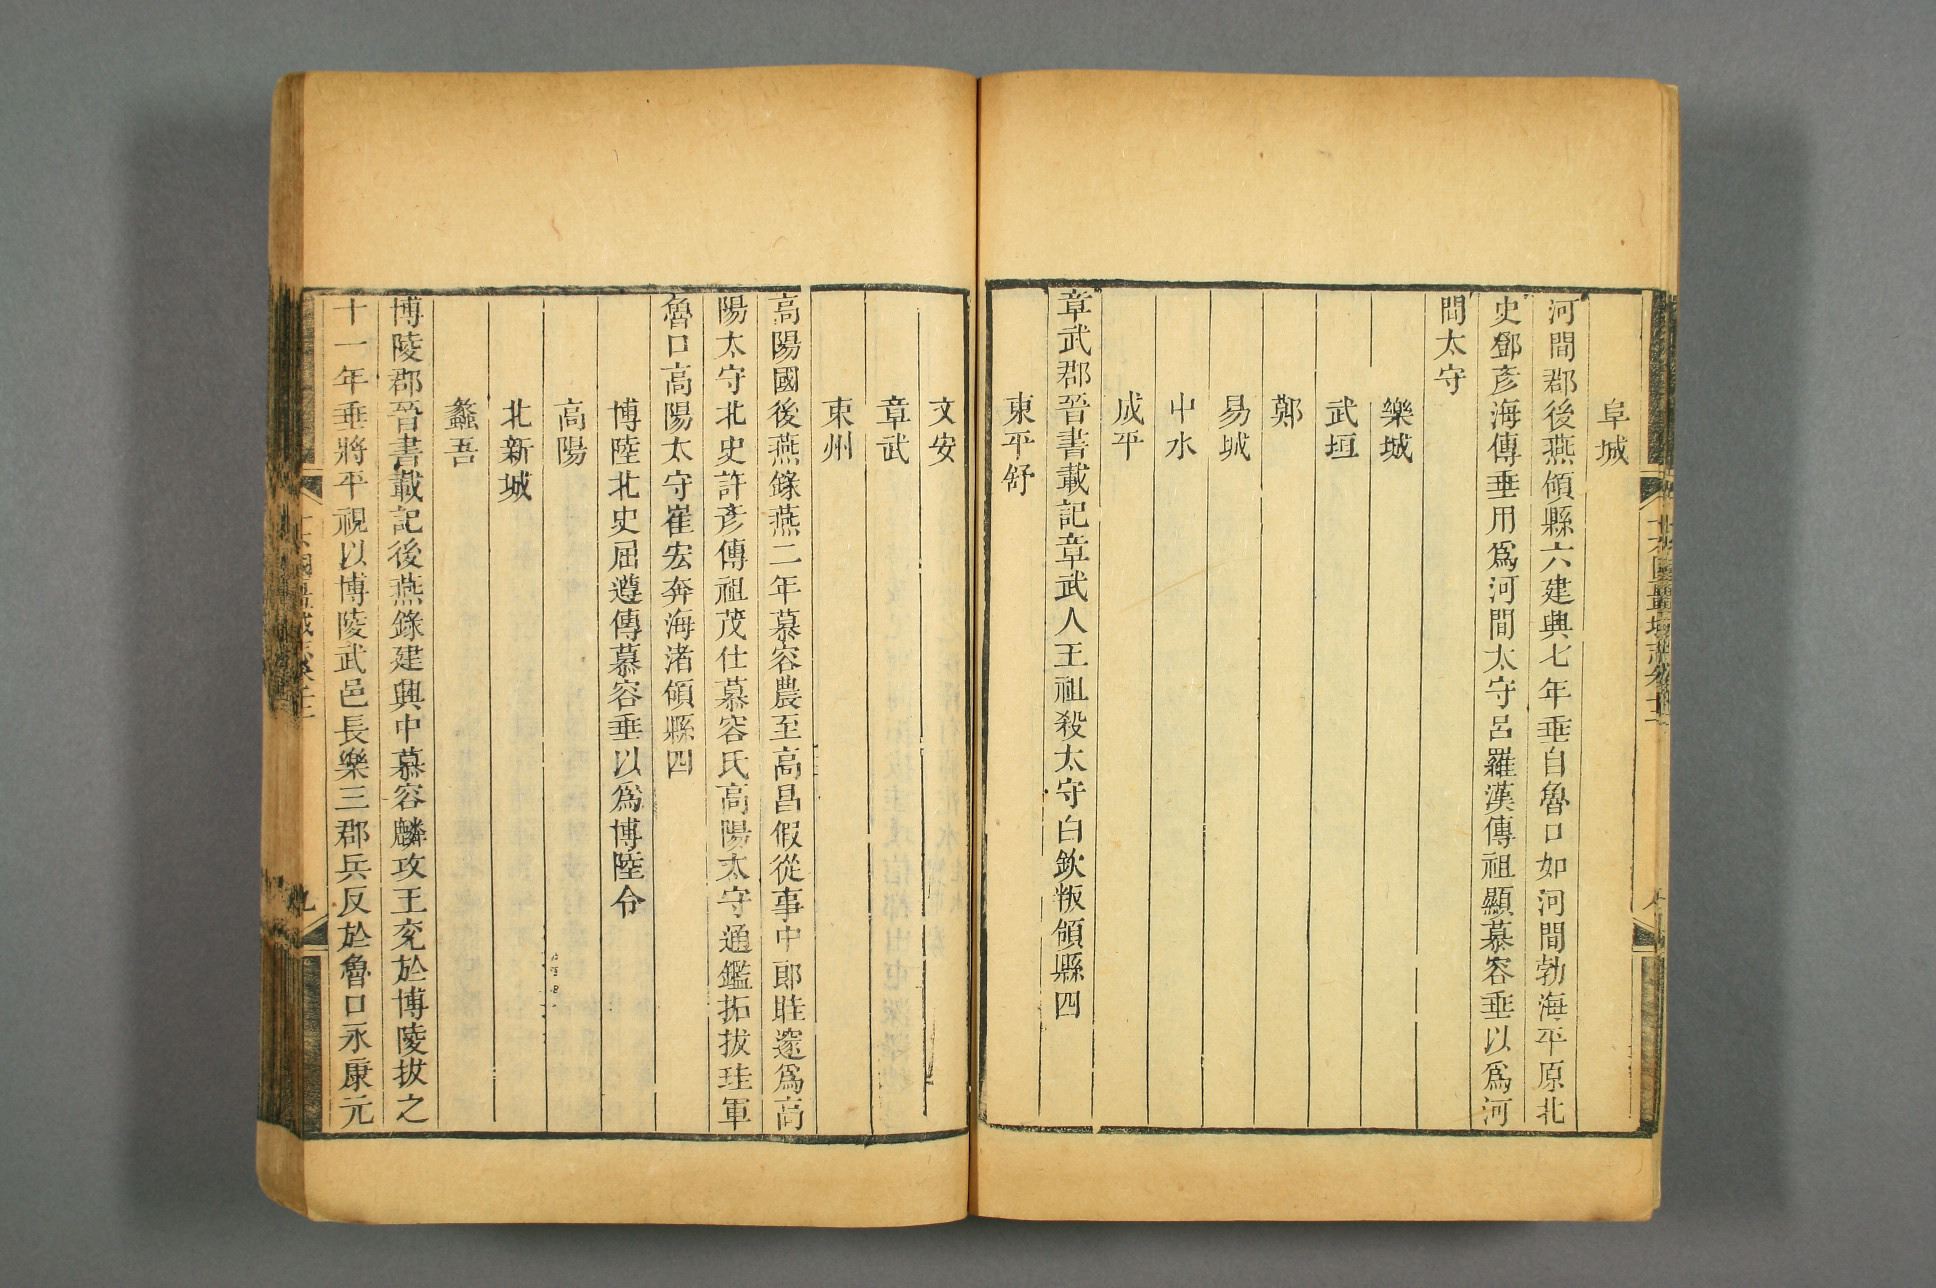 阜城
河間郡後燕領縣六建興七年垂自魯口如河間勃海平原北
史鄧彥海傳垂用爲河間太守呂羅漢傳祖顯慕容垂以爲河
間太守
樂城
武垣
鄚
易城
中水
成平
章武郡晉書載記章武人王祖殺太守白欽叛領縣四
東平舒
文安
章武
束州
高陽國後燕錄燕二年慕容農至高昌假從事中郎眭邃爲高
陽太守北史許彥傳祖茂仕慕容氏高陽太守通鑑拓拔珪軍
魯口高陽太守崔宏奔海渚領縣四
博陸北史屈遵傳慕容垂以爲博陸令
高陽
北新城
蠡吾
博陵郡晉書載記後燕錄建興中慕容麟攻王兖於博陵拔之
十一年垂將平視以博陵武邑長樂三郡兵反於魯口永康元
九